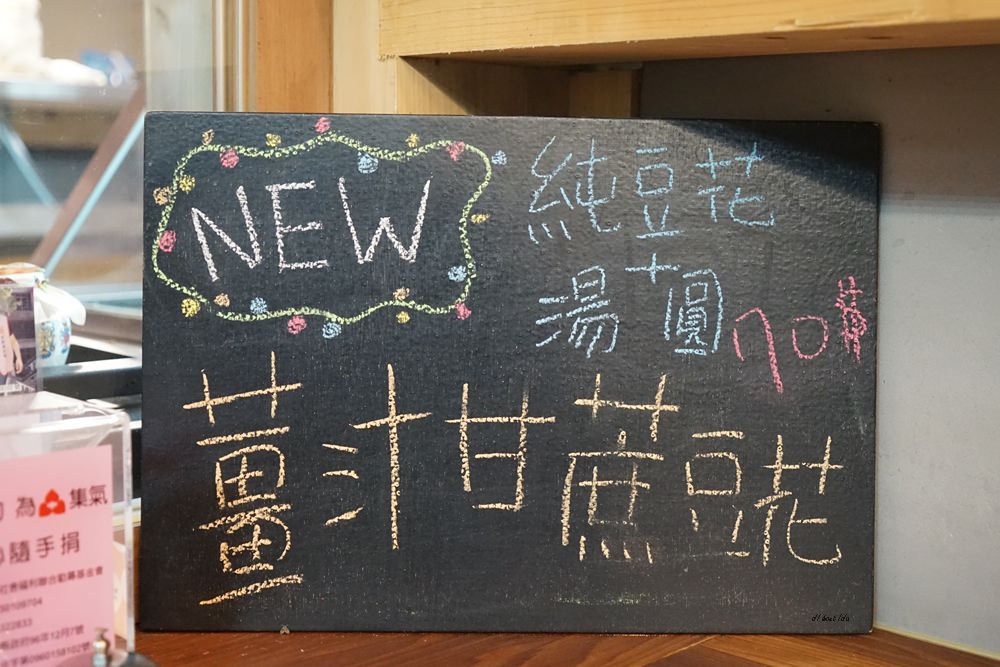 NEW
純豆花
湯圓
70
薑汁甘蔗豆花
為 集氣
隨手捐